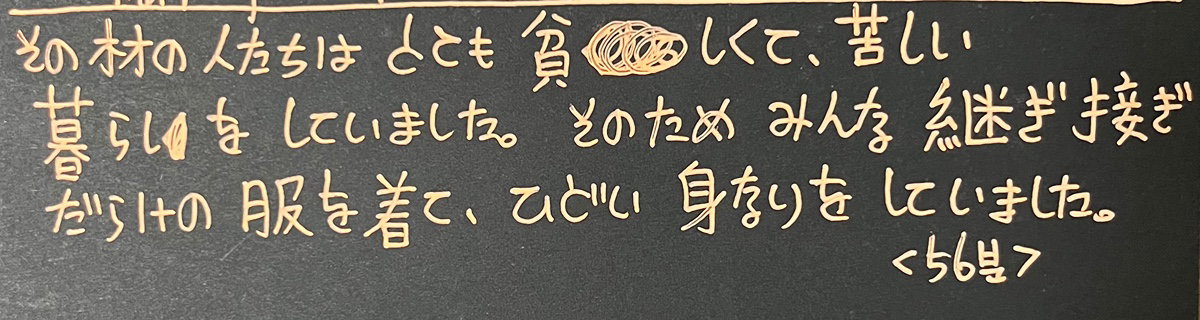 その村の人たちは ととも 貧しくて、苦しい
暮らしを していました。 そのため みんな 継ぎ接ぎ
だらけの 服を着て、ひどい 身なりを していました。
<56분>